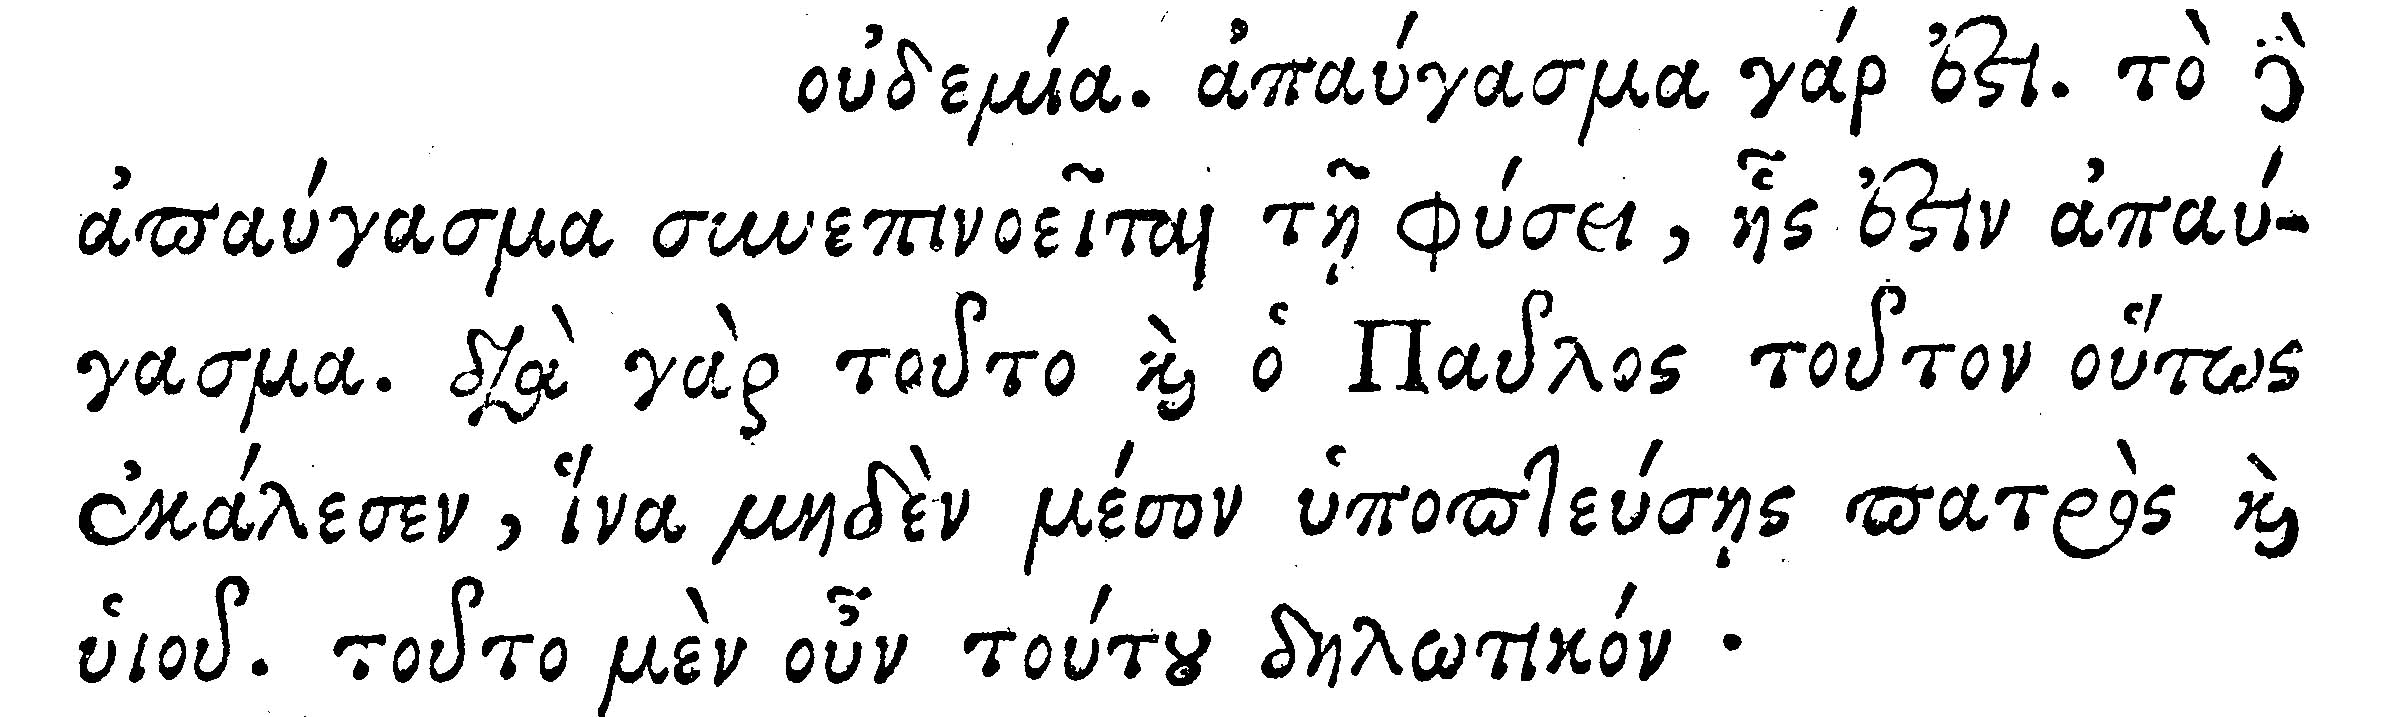 οὐδεμία. ἀπαύγασμα γάρ ἐστι. τὸ δὲ
ἀπαύγασμα συνεπινοεῖται τῇ φύσει, ἧς ἐστιν ἀπαύ-
γασμα. διὰ γὰρ τοῦτο καὶ ὁ Παῦλος τοῦτον οὕτως
ἐκάλεσεν, ἵνα μηδὲν μέσον ὑποπτεύσῃς πατρὸς καὶ
ὑιοῦ. τοῦτο μὲν οὖν τούτου δηλωτικόν.